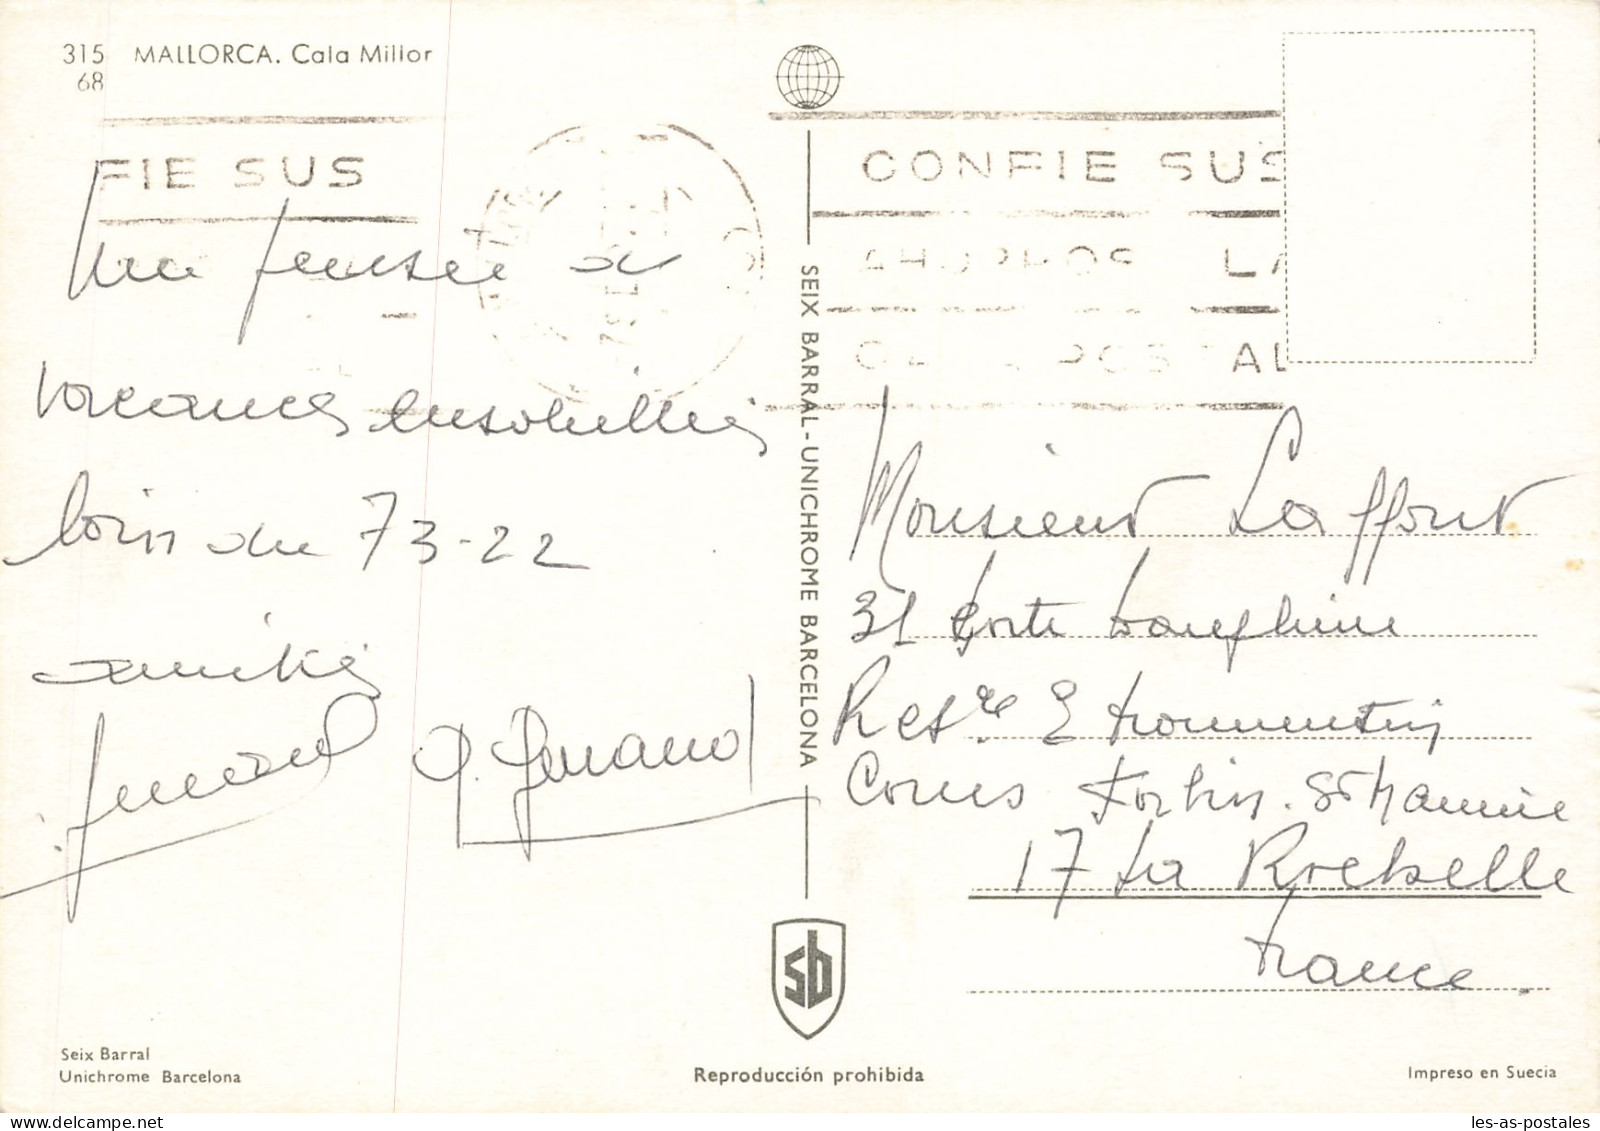 315 MALLORCA. Cala Millor
68
FIE SUS
CONFIE SUS
AHORROS LA
POSTAL
Une pensée de
vacances ensoleillées
loin du 73-22
amitiés
SEIX BARRAL - UNICHROME BARCELONA
Monsieur Laffont
31 Porte Dauphine
Rés. Fromentin
Cours Forbin
17 La Rochelle
France
sb
Seix Barral
Unichrome Barcelona
Reproducción prohibida
Impreso en Suecia
les-as-postales